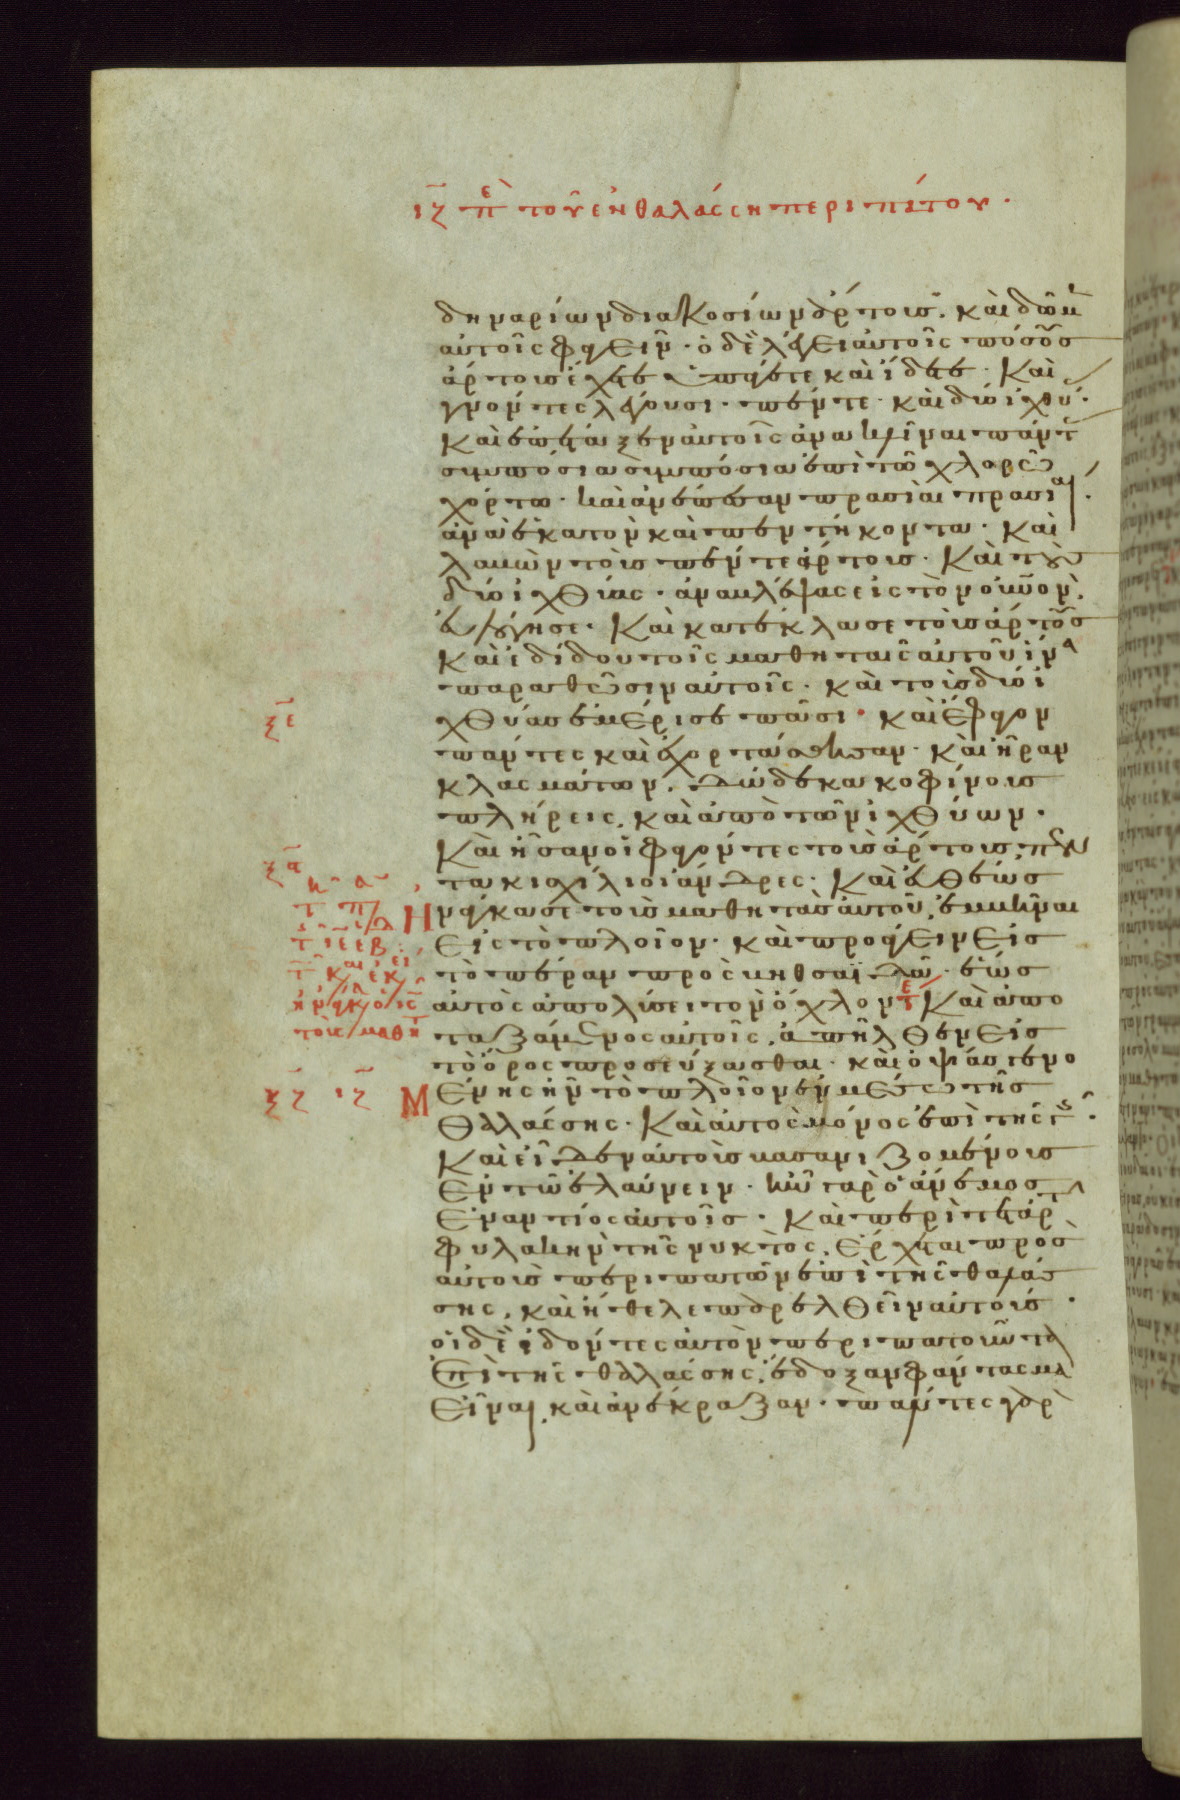 ιζ πε τοῦ ἐν θαλάσση περιπάτου.
δηναρίων διακοσίων ἄρτους. καὶ δῶμ
αὐτοῖς φαγεῖν. ὁ δὲ λέγει αὐτοῖς πόσους
ἄρτους ἔχετε ὑπάγετε καὶ ἴδετε. Καὶ
γνόντες λέγουσι. πέντε. καὶ δύο ἰχθύ.
Καὶ ἐπέταξεν αὐτοῖς ἀνακλῖναι πάντ
συμπόσια συμπόσια ἐπὶ τῶ χλωρῶ
χόρτω. καὶ ἀνέπεσαν πρασιαὶ πρασιαί.
ἀνὰ ἑκατὸν καὶ ἀνὰ πεντήκοντα. Καὶ
λαβὼν τοὺς πέντε ἄρτους. Καὶ τοὺς
δύο ἰχθύας. ἀναβλέψας εἰς τὸν οὐνον,
εὐλόγησε. Καὶ κατέκλασε τοὺς ἄρτους
καὶ ἐδίδου τοῖς μαθηταῖς αὐτοῦ ἵνα
παραθῶσιν αὐτοῖς. καὶ τοὺς δύο ἰ
ξε
χθύας ἐμέρισε πᾶσι. καὶ ἔφαγον
πάντες καὶ ἐχορτάσθησαν. καὶ ἦραν
κλασμάτων, δώδεκα κοφίνους
πλήρεις, καὶ ἀπὸ τῶν ἰχθύων.
Καὶ ἦσαν οἱ φαγόντες τοὺς ἄρτους, πεν
ξα
τακισχίλιοι ἄνδρες. Καὶ εὐθέως
ἠνάγκασε τοὺς μαθητὰς αὐτοῦ, ἐμβῆναι
εἰς τὸ πλοῖον. καὶ προάγειν εἰς
τὸ πέραν πρὸς βηθσαϊδὰν. ἕως
αὐτὸς ἀπολύσει τὸν ὄχλον τε Καὶ ἀπο
ταξάμενος αὐτοῖς, ἀπῆλθεν εἰς
τὸ ὄρος προσεύξασθαι. καὶ ὀψίας γενο
ξζ ιζ
μένης ἦν τὸ πλοῖον ἐν μέσω τῆς
θαλάσσης. Καὶ αὐτὸς μόνος ἐπὶ τῆς γῆς.
Καὶ εἶδεν αὐτοὺς βασανιζομένους
ἐν τῶ ἐλαύνειν. ἦν γὰρ ὁ ἄνεμος
ἐναντίος αὐτοῖς. Καὶ περὶ τετάρτ
φυλακὴν τῆς νυκτὸς, ἔρχεται πρὸς
αὐτοὺς περιπατῶν ἐπὶ τῆς θαλάς
σης, καὶ ἤθελε παρελθεῖν αὐτούς.
οἱ δὲ ἰδόντες αὐτὸν περιπατοῦντα
ἐπὶ τῆς θαλάσσης, ἔδοξαν φάντασμα
εἶναι, καὶ ἀνέκραξαν. πάντες γὰρ